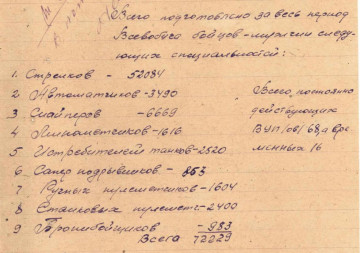 Всего подготовлено за весь период
Всевобуча бойцов-мужчин следу-
ющих специальностей:
1. Стрелков - 52084
2 Автоматчиков-3490
3 Снайперов -6669
4 Минометчиков-1616
5 Истребителей танков-2520
6. Сапер подрывников- 863
7 Ручных пулеметчиков-1604
8 Станковых пулемет-2400
9 Бронебойщиков -983
Всего 72229
Всего постоянно
действующих
ВУП/ов/ 68, а вре
менных 16